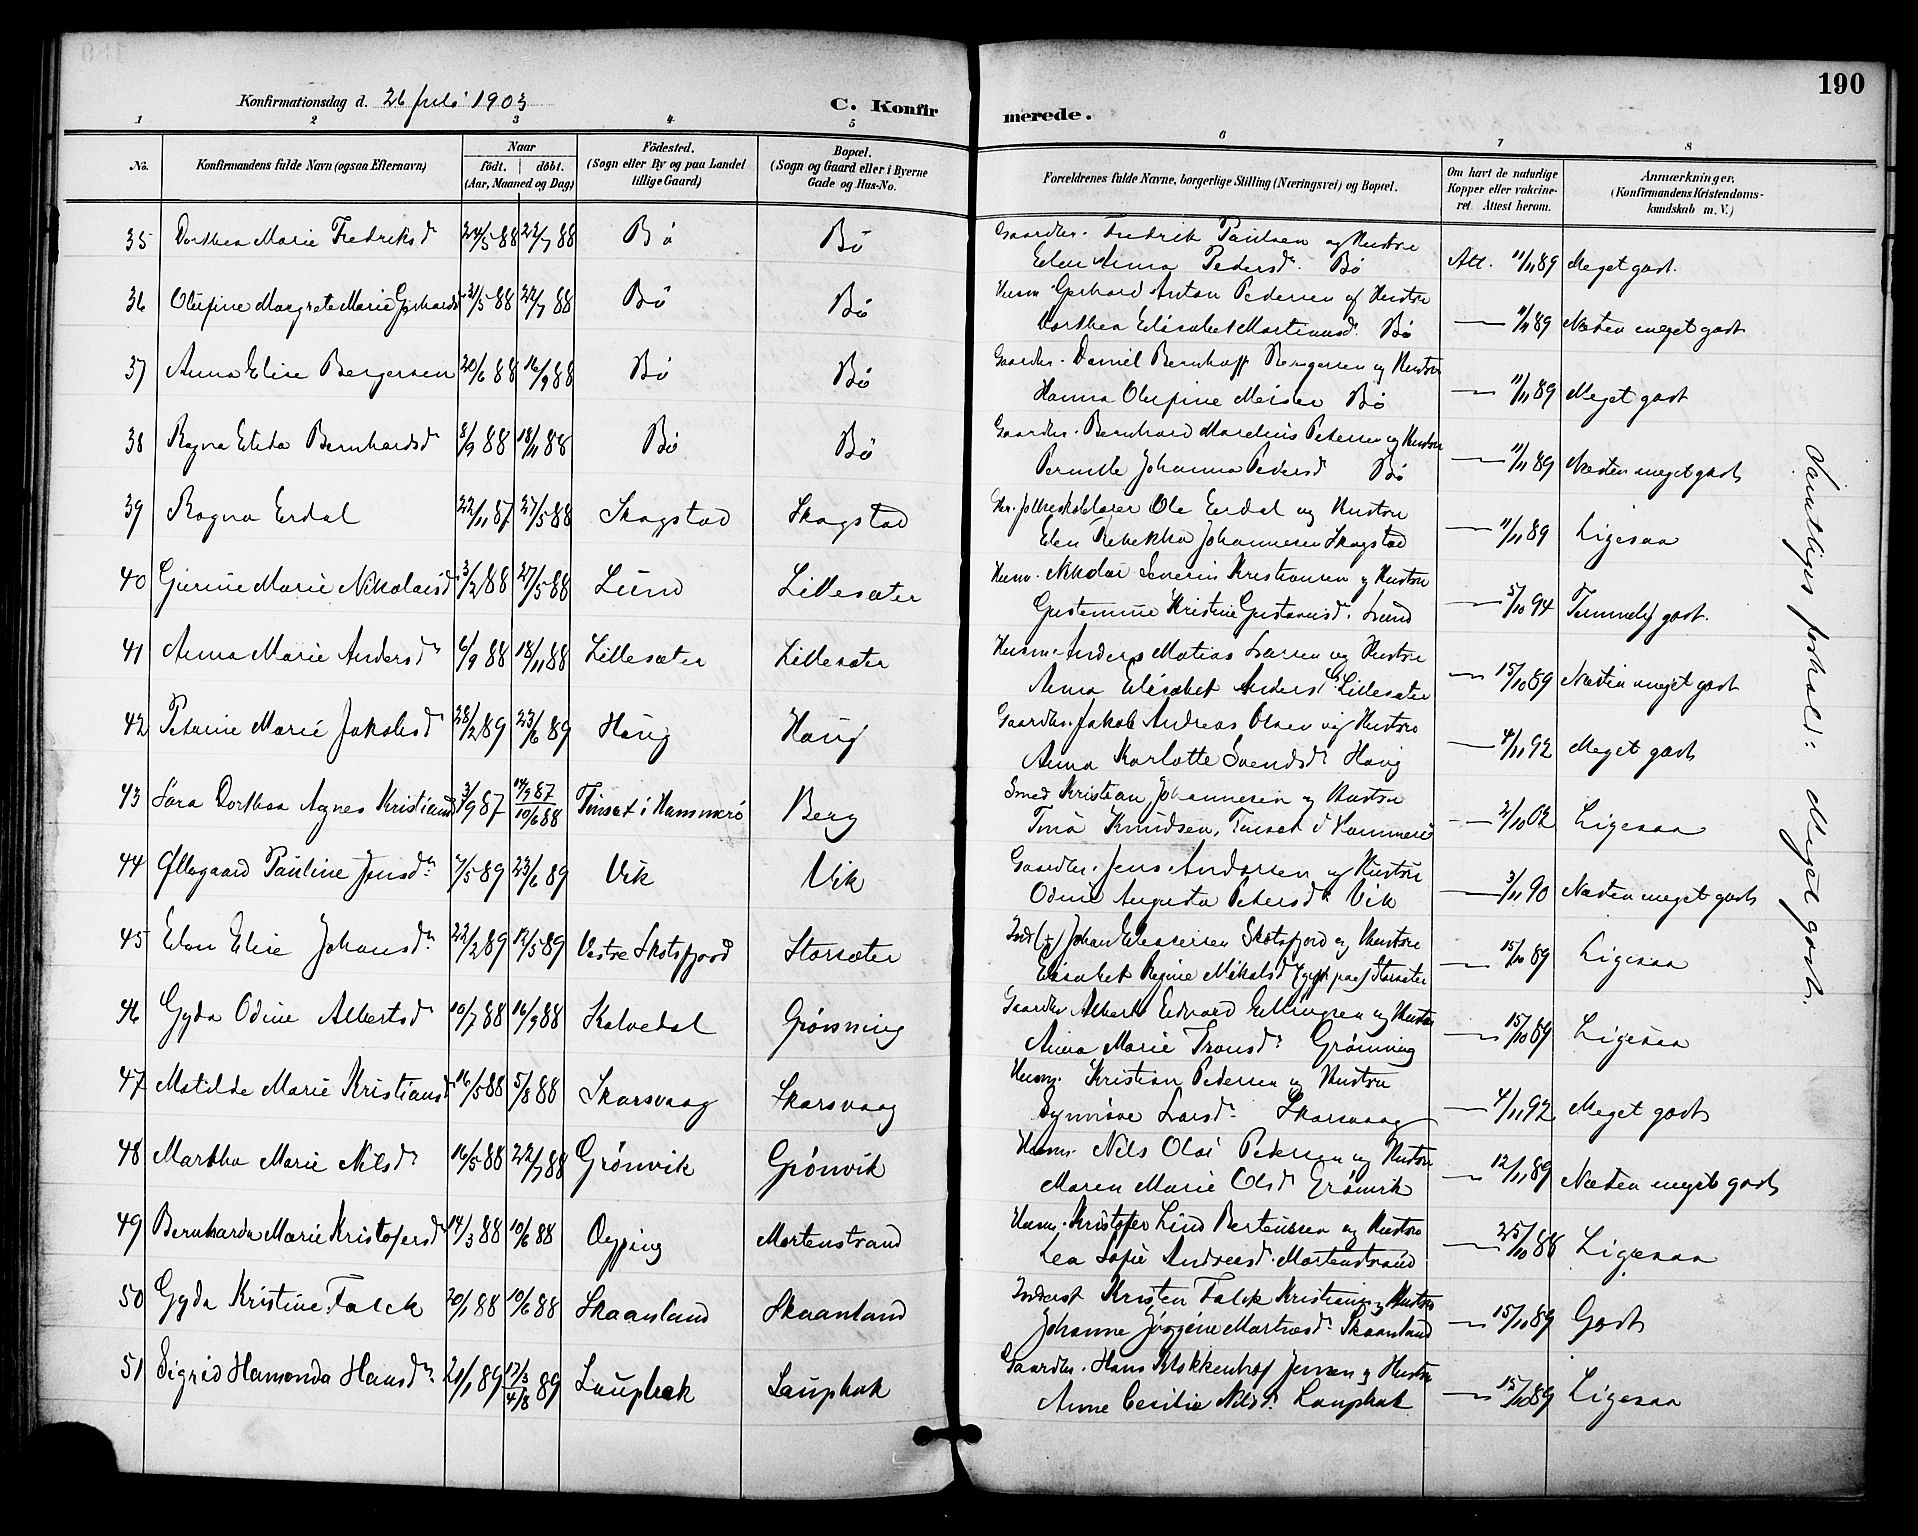 190
Konfirmationsdag d. 26 juli 1903
C. Konfirmerede.
1 2 3 4 5 6 7 8
No. Konfirmandens fulde Navn (ogsaa Efternavn) Naar født. døbt. (Aar, Maaned og Dag) Fødested. (Sogn eller By og paa Landet tillige Gaard) Bopæl. (Sogn og Gaard eller i Byerne Gade og Hus-No. Forældrenes fulde Navne, borgerlige Stilling (Næringsvei) og Bopæl. Om havt de naturlige Kopper eller vakcineret. Attest herom. Anmærkninger, (Konfirmandens Kristendomskundskab m. V.)
35 Dorthea Marie Fredriksd 24/5 88 22/7 88 Bø Bø Gaardbr. Fredrik Paulsen og Hustru
Elen Anna Pedersd. Bø Att. 11/11 89 Meget godt.
36 Olufine Margrete Marie Gerhardsd 31/5 88 22/7 88 Bø Bø Husm. Gerhard Anton Pedersen og Hustru
Dorthea Elisabet Martinusd. Bø — 11/11 89 Næsten meget godt
37 Anna Elise Bergersen 20/6 88 16/9 88 Bø Bø Gaardbr. Daniel Bernhoff Bergersen og Hustru
Hanna Olufine Meiser Bø — 11/11 89 Meget godt
38 Ragna Elida Bernhardsd 8/9 88 18/11 88 Bø Bø Gaardbr. Bernhard Mardius Petersen og Hustru
Pernille Johanna Pedersd Bø — 11/11 89 Næsten meget godt
39 Ragna Erdal 22/11 87 27/5 88 Skagstad Skagstad Hr. folkeskolelærer Ole Erdal og Hustru
Elen Rebekka Johannesen Skagstad — 11/11 89 Ligesaa
40 Gjerine Marie Nikolaisd 3/2 88 27/5 88 Lund Lillesæter Husm. Nikolai Severin Kristiansen og Hustru
Kristine Gustavusd. Lund — 5/10 94 Temmelig godt.
41 Anna Marie Andersd 6/9 88 18/11 88 Lillesæter Lillesæter Husm. Anders Matias Larsen og Hustru
Anna Elisabet Andersd Lillesæter — 15/10 89 Næsten meget godt
42 Petrine Marie Jakobsd 28/2 89 23/6 89 Haug Haug Gaardbr. Jakob Andreas Olsen og Hustru
Anna Karlotte Svendsd Haug — 4/11 92 Meget godt
43 Sara Dorthea Agnes Kristiansd 3/9 87 14/9 87 10/6 88 Tinset i Hammerø Berg Smed Kristian Johannesen og Hustru
Trna Knudsen, Tinset i Hammerø — 2/10 02 Ligesaa
44 Øllegaard Pauline Jensd 7/5 89 23/6 89 Vik Vik Gaardbr. Jens Andersen og Hustru
Odine Augusta Petersd Vik — 3/11 90 Næsten meget godt
45 Elen Elise Johansd 22/2 89 12/5 89 Vestre Skotsfjord Storsæter Ind. (†) Johan Eliassen Skotsfjord og Hustru
Elisabet Regine Mikalsd (gift paa) Storsæter — 15/10 89 Ligesaa
46 Gyda Odine Albertsd 10/7 88 16/9 88 Kalvedal Grønning Gaardbr. Albert Edvard Ellingsen og Hustru
Anna Marie Tronsd. Grønning — 15/10 89 Ligesaa
47 Matilde Marie Kristiansd 16/5 88 5/8 88 Skarsvaag Skarsvaag Husm. Kristian Pedersen og Hustru
Synnøve Larsd. Skarsvaag — 4/11 92 Meget godt
48 Martha Marie Nilsd 16/5 88 22/7 88 Grønvik Grønvik Husm. Nils Olai Pedersen og Hustru
Maren Marie Olsd Grønvik — 12/11 89 Næsten meget godt
49 Bernharda Marie Kristofersd 14/3 88 10/6 88 Oyping Mortenstrand Husm. Kristofer Lind Berteussen og Hustru
Lea Sofie Andersd. Mortenstrand — 25/10 88 Ligesaa
50 Gyda Kristine Falck 20/1 88 10/6 88 Skaanland Skaanland Inderst Kristen Falck Kristiansen og Hustru
Johanne Jørgine Martinsd. Skaanland — 15/10 89 Godt
51 Sigrid Hamonda Hansd 20/1 89 17/3 4/8 89 Lauphak Lauphak Gaardbr. Hans Klokkenhof Jensen og Hustru
Anne Cecilie Nilsd. Lauphak — 15/10 89 Ligesaa
Samtliges forhold: Meget godt.